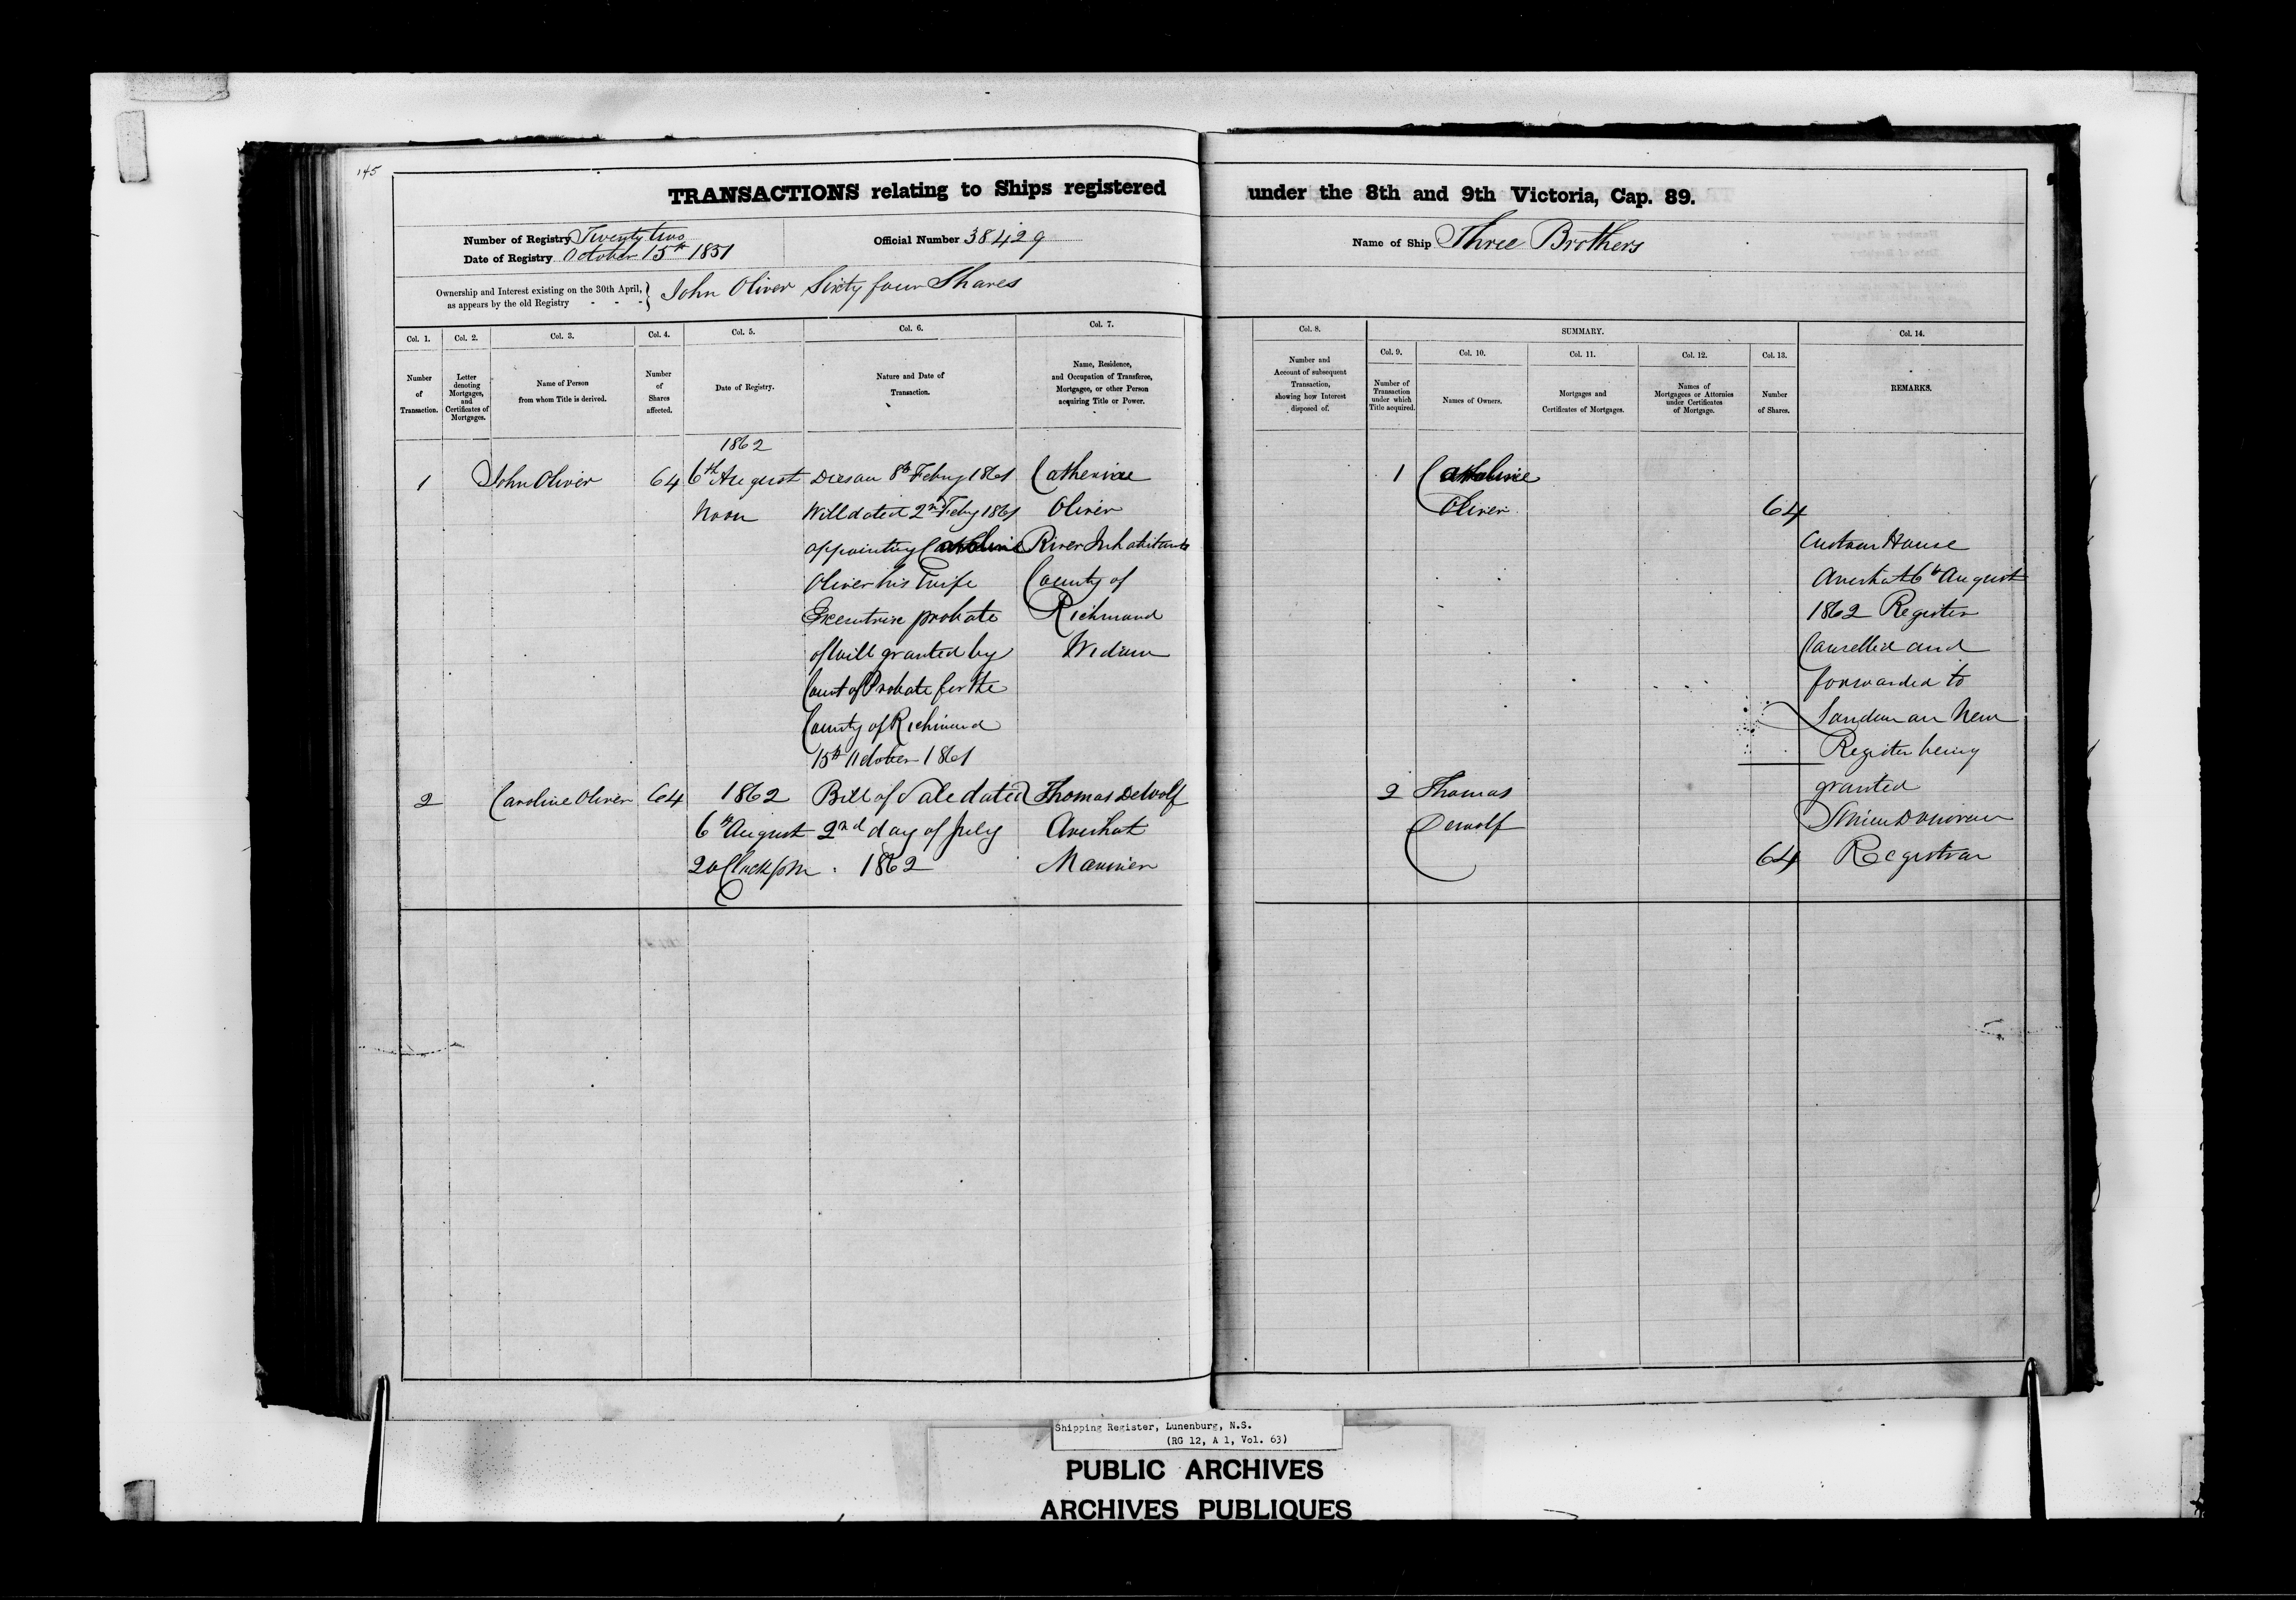 145
TRANSACTIONS relating to Ships registered under the 8th and 9th Victoria, Cap. 89.
Number of Registry Twenty two
Date of Registry October 15th 1851
Official Number 38429
Name of Ship Three Brothers
Ownership and Interest existing on the 30th April,
as appears by the old Registry - - - } John Oliver Sixty four Shares
Col. 1.
Number
of
Transaction.
Col. 2.
Letter
denoting
Mortgages,
and
Certificates of
Mortgages.
Col. 3.
Name of Person
from whom Title is derived.
Col. 4.
Number
of
Shares
affected.
Col. 5.
Date of Registry.
Col. 6.
Nature and Date of
Transaction.
Col. 7.
Name, Residence,
and Occupation of Transferee,
Mortgagee, or other Person
acquiring Title or Power.
Col. 8.
Number and
Account of subsequent
Transaction,
showing how Interest
disposed of.
SUMMARY.
Col. 9.
Number of
Transaction
under which
Title acquired.
Col. 10.
Names of Owners.
Col. 11.
Mortgages and
Certificates of Mortgages.
Col. 12.
Names of
Mortgagees or Attornies
under Certificates
of Mortgage.
Col. 13.
Number
of Shares.
Col. 14.
REMARKS.
1
John Oliver
64
1862
6th August
Noon
8th Febuy 1861
Will dated 2nd Feby 1861
appointing Caroline
Oliver his Wife
Executrix probate
of will granted by
Court of Probate for the
County of Richmond
15th October 1861
Catherine
Oliver
River Inhabitants
County of
Richmond
Widow
1
Caroline
Oliver
64
2
Caroline Oliver
64
1862
6th August
2 oClock pm
Bill of Sale dated
2nd day of July
1862
Thomas DeWolf
Arichat
Mariner
2
Thomas
Dewolf
64
Custom House
Arichat 6th August
1862 Register
Cancelled and
forwarded to
London a New
Register being
granted
Donovan
Registrar
Shipping Register, Lunenburg, N.S.
(RG 12, A 1, Vol. 63)
PUBLIC ARCHIVES
ARCHIVES PUBLIQUES